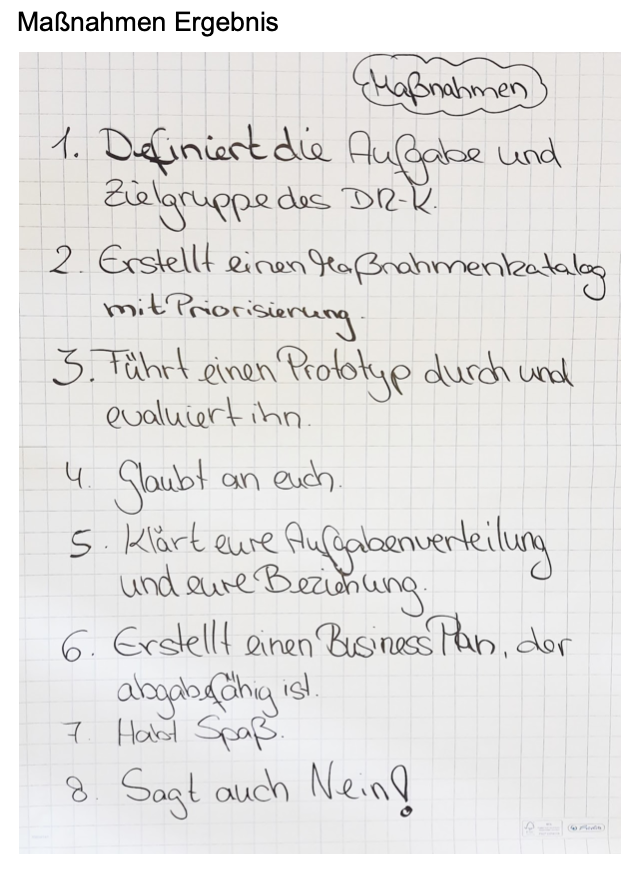 Maßnahmen Ergebnis
Maßnahmen
1. Definiert die Aufgabe und
Zielgruppe des DR-K.
2. Erstellt einen Maßnahmenkatalog
mit Priorisierung.
3. Führt einen Prototyp durch und
evaluiert ihn.
4. Glaubt an euch.
5. Klärt eure Aufgabenverteilung
und eure Beziehung.
6. Erstellt einen Business Plan, der
abgabefähig ist.
7. Habt Spaß.
8. Sagt auch Nein!